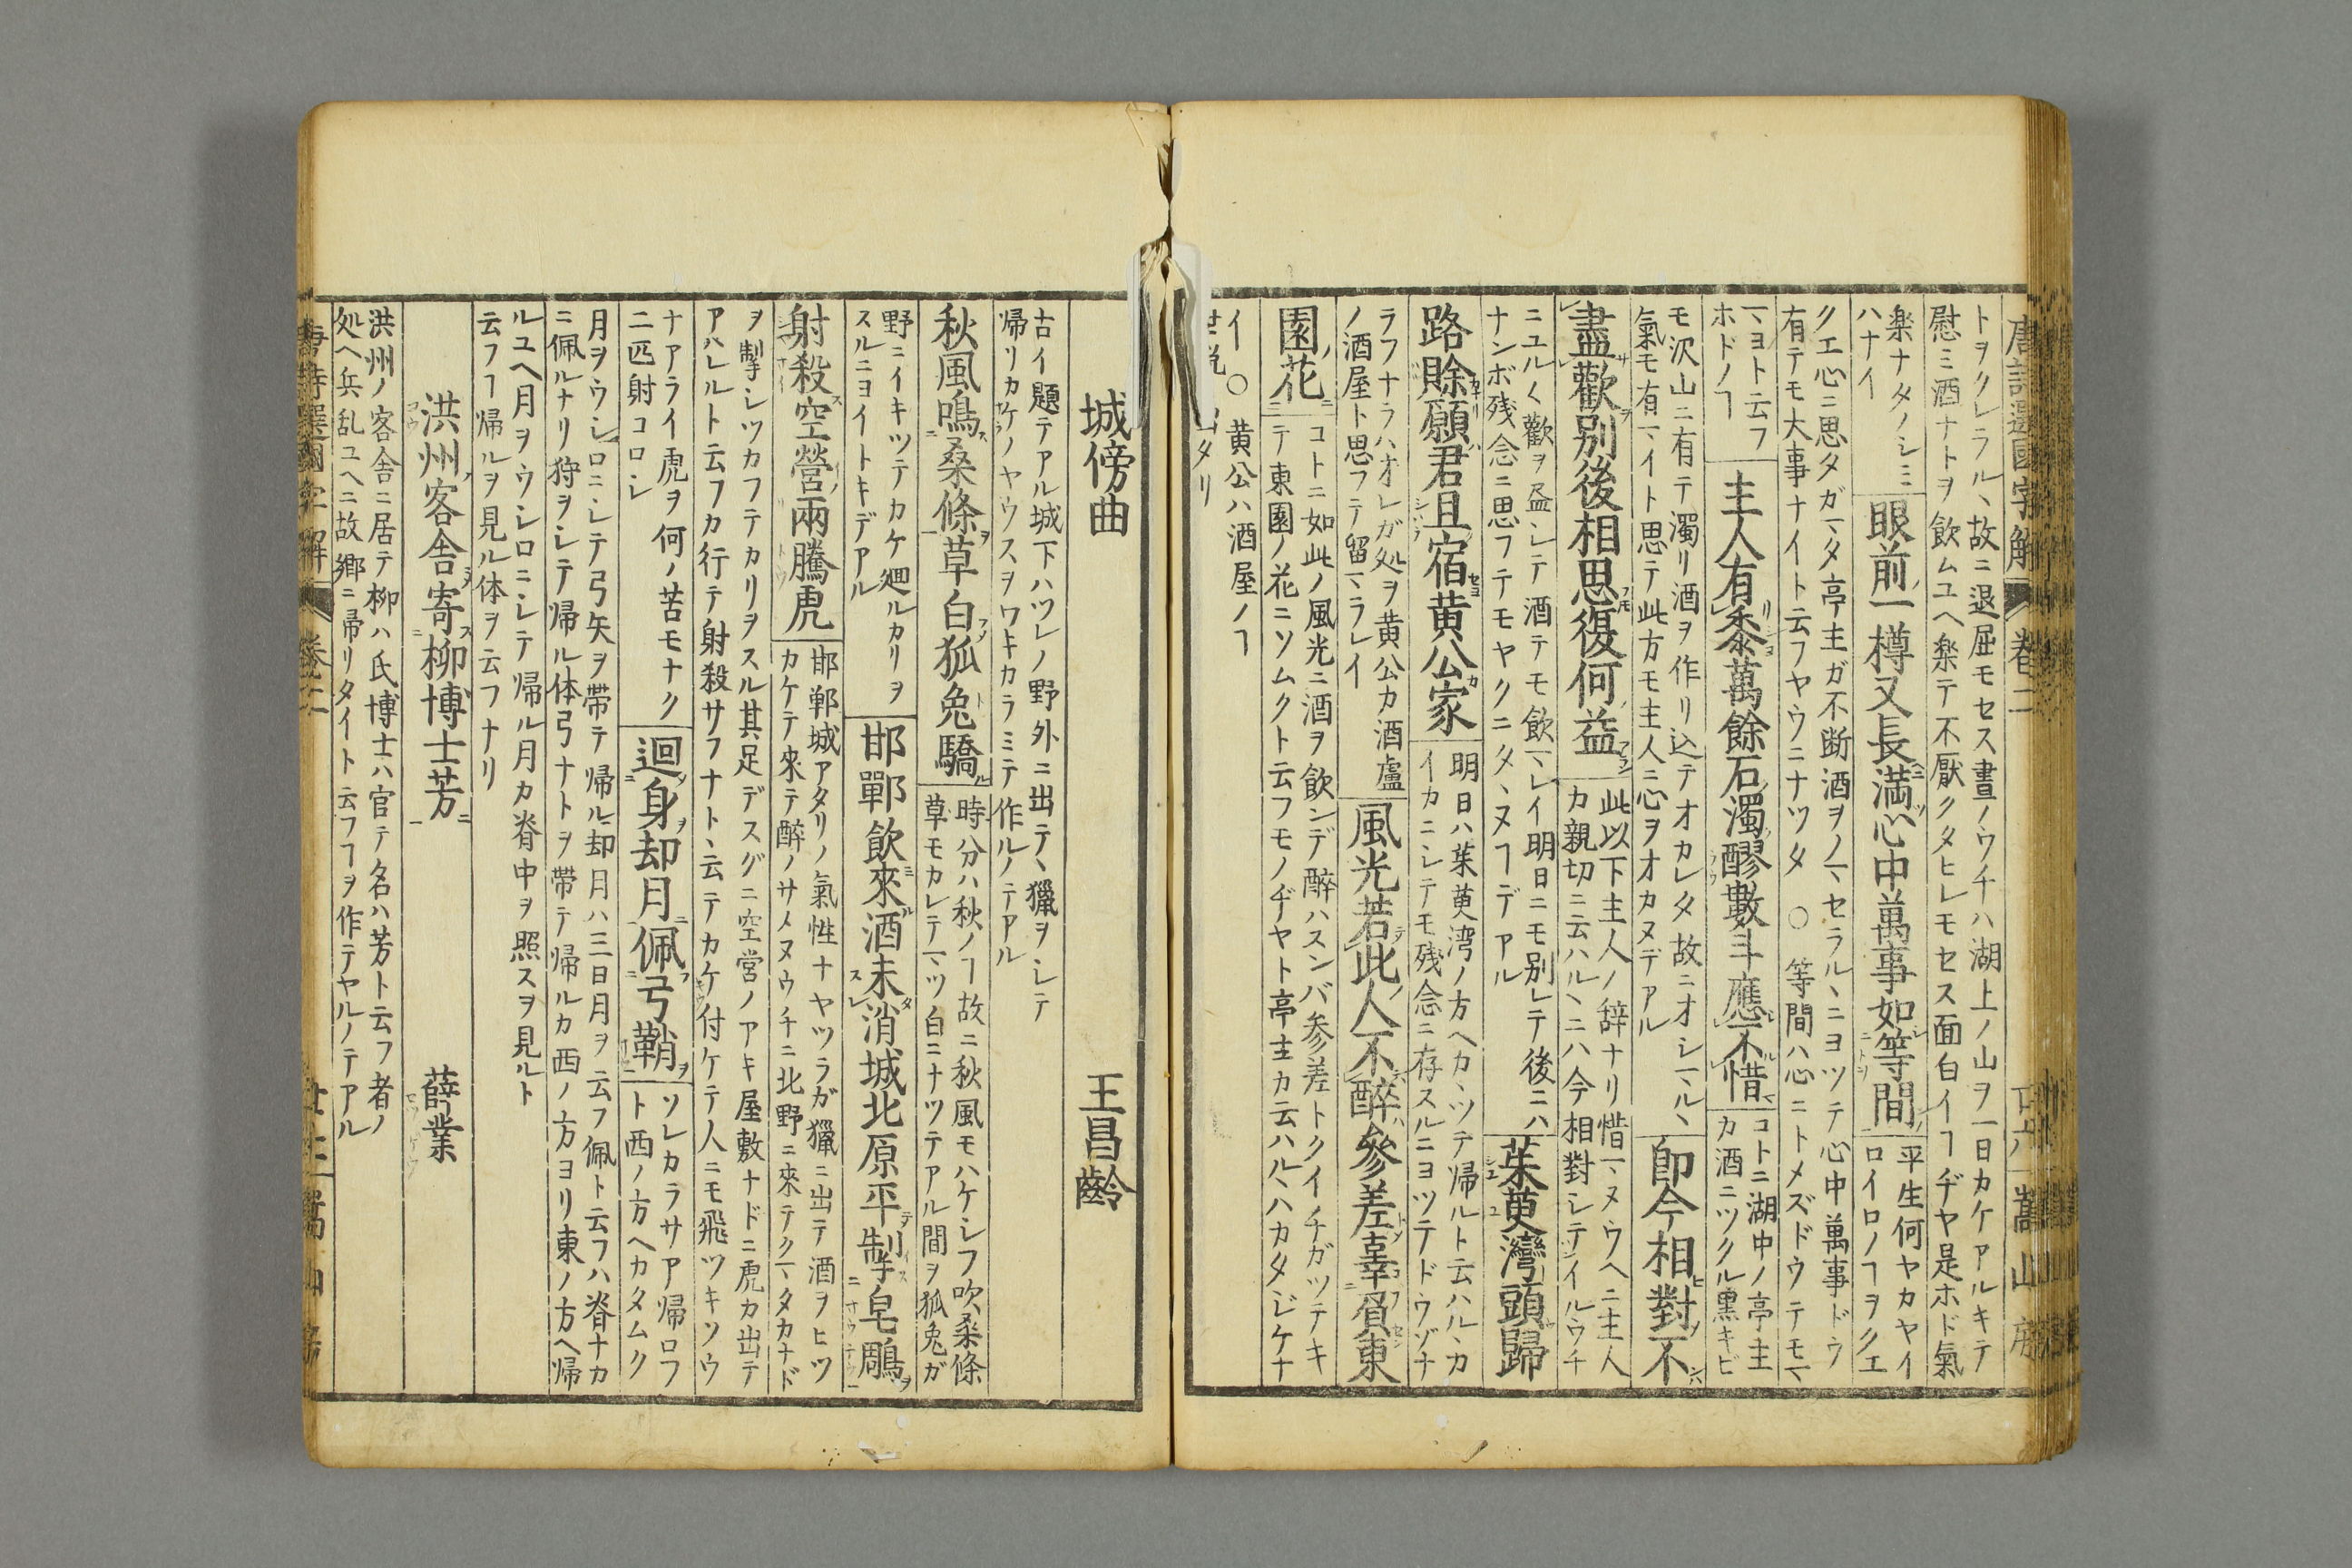 唐詩選國字解 卷二 嵩山房
トヲクレラル、故ニ退屈モセス晝ノウチハ湖上ノ山ヲ一日カケアルキテ
慰ミ酒ナトヲ飲ムユヘ楽テ不厭クタヒレモセス面白イヿヂヤ是ホド氣
楽ナタノシミ
ハナイ
眼前一樽又長満心中萬事如等間
平生何ヤカヤイ
ロイロノヿヲクエ
クエ心ニ思タガマタ亭主ガ不断酒ヲノマセラル、ニヨツテ心中萬事ドウ
有テモ大事ナイト云フヤウニナツタ 〇 等間ハ心ニトメズドウテモマ
マヨト云フ
ホドノヿ
主人有黍萬餘石濁醪數斗應不惜
コトニ湖中ノ亭主
カ酒ニツクル黒キビ
モ沢山ニ有テ濁リ酒ヲ作リ込テオカレタ故ニオシマル、
氣モ有マイト思テ此方モ主人ニ心ヲオカヌデアル
即今相對不
盡歡別後相思復何益
此以下主人ノ辞ナリ惜マヌウヘニ主人
カ親切ニ云ハル、ニハ今相對シテイルウチ
ニユルく歡ヲ盡シテ酒テモ飲マレイ明日ニモ別レテ後ニハ
ナンボ残念ニ思フテモヤクニタ、ヌヿデアル
茱萸灣頭歸
路賖願君且宿黄公家
明日ハ茱萸湾ノ方ヘカ、ツテ帰ルト云ハル、カ
イカニシテモ残念ニ存スルニヨツテドウゾナ
ラフナラハオレガ処ヲ黄公カ酒盧
ノ酒屋ト思フテ留マラレイ
風光若此人不醉參差辜負東
園花
コトニ如此ノ風光ニ酒ヲ飲ンデ醉ハスンバ参差トクイチガツテキ
ニテ東園ノ花ニソムクト云フモノヂヤト亭主カ云ハル、ハカタジケナ
イ 〇 黄公ハ酒屋ノヿ
世説 タリ
城傍曲 王昌齡
古イ題テアル城下ハツレノ野外ニ出テ、獵ヲシテ
帰リカケノヤウスヲワキカラミテ作ルノテアル
秋風鳴桑條草白狐兔驕
時分ハ秋ノヿ故ニ秋風モハケシフ吹桑條
草モカレテマツ白ニナツテアル間ヲ狐兔ガ
野ニイキツテカケ廻ルカリヲ
スルニヨイトキデアル
邯鄲飲來酒未消城北原平掣皂鵰
邯鄲城アタリノ氣性ナヤツラガ獵ニ出テ酒ヲヒツ
カケテ來テ醉ノサメヌウチニ北野ニ來テクマタカナド
射殺空營兩騰虎
ヲ掣シツカフテカリヲスル其足デスグニ空営ノアキ屋敷ナドニ虎カ出テ
アハレルト云フカ行テ射殺サフナト、云テカケ付ケテ人ニモ飛ツキソウ
ナアライ虎ヲ何ノ苦モナク
二匹射コロシ
迴身却月佩弓鞘
ソレカラサア帰ロフ
ト西ノ方ヘカタムク
月ヲウシロニシテ弓矢ヲ帯テ帰ル却月ハ三日月ヲ云フ佩ト云フハ脊ナカ
ニ佩ルナリ狩ヲシテ帰ル体弓ナトヲ帶テ帰ルカ西ノ方ヨリ東ノ方ヘ帰
ルユヘ月ヲウシロニシテ帰ル月カ脊中ヲ照スヲ見ルト
云フヿ帰ルヲ見ル体ヲ云フナリ
洪州客舎寄柳博士芳 薛業
洪州ノ客舎ニ居テ柳ハ氏博士ハ官テ名ハ芳ト云フ者ノ
処ヘ兵乱ユヘニ故郷ニ帰リタイト云フヿヲ作テヤルノテアル